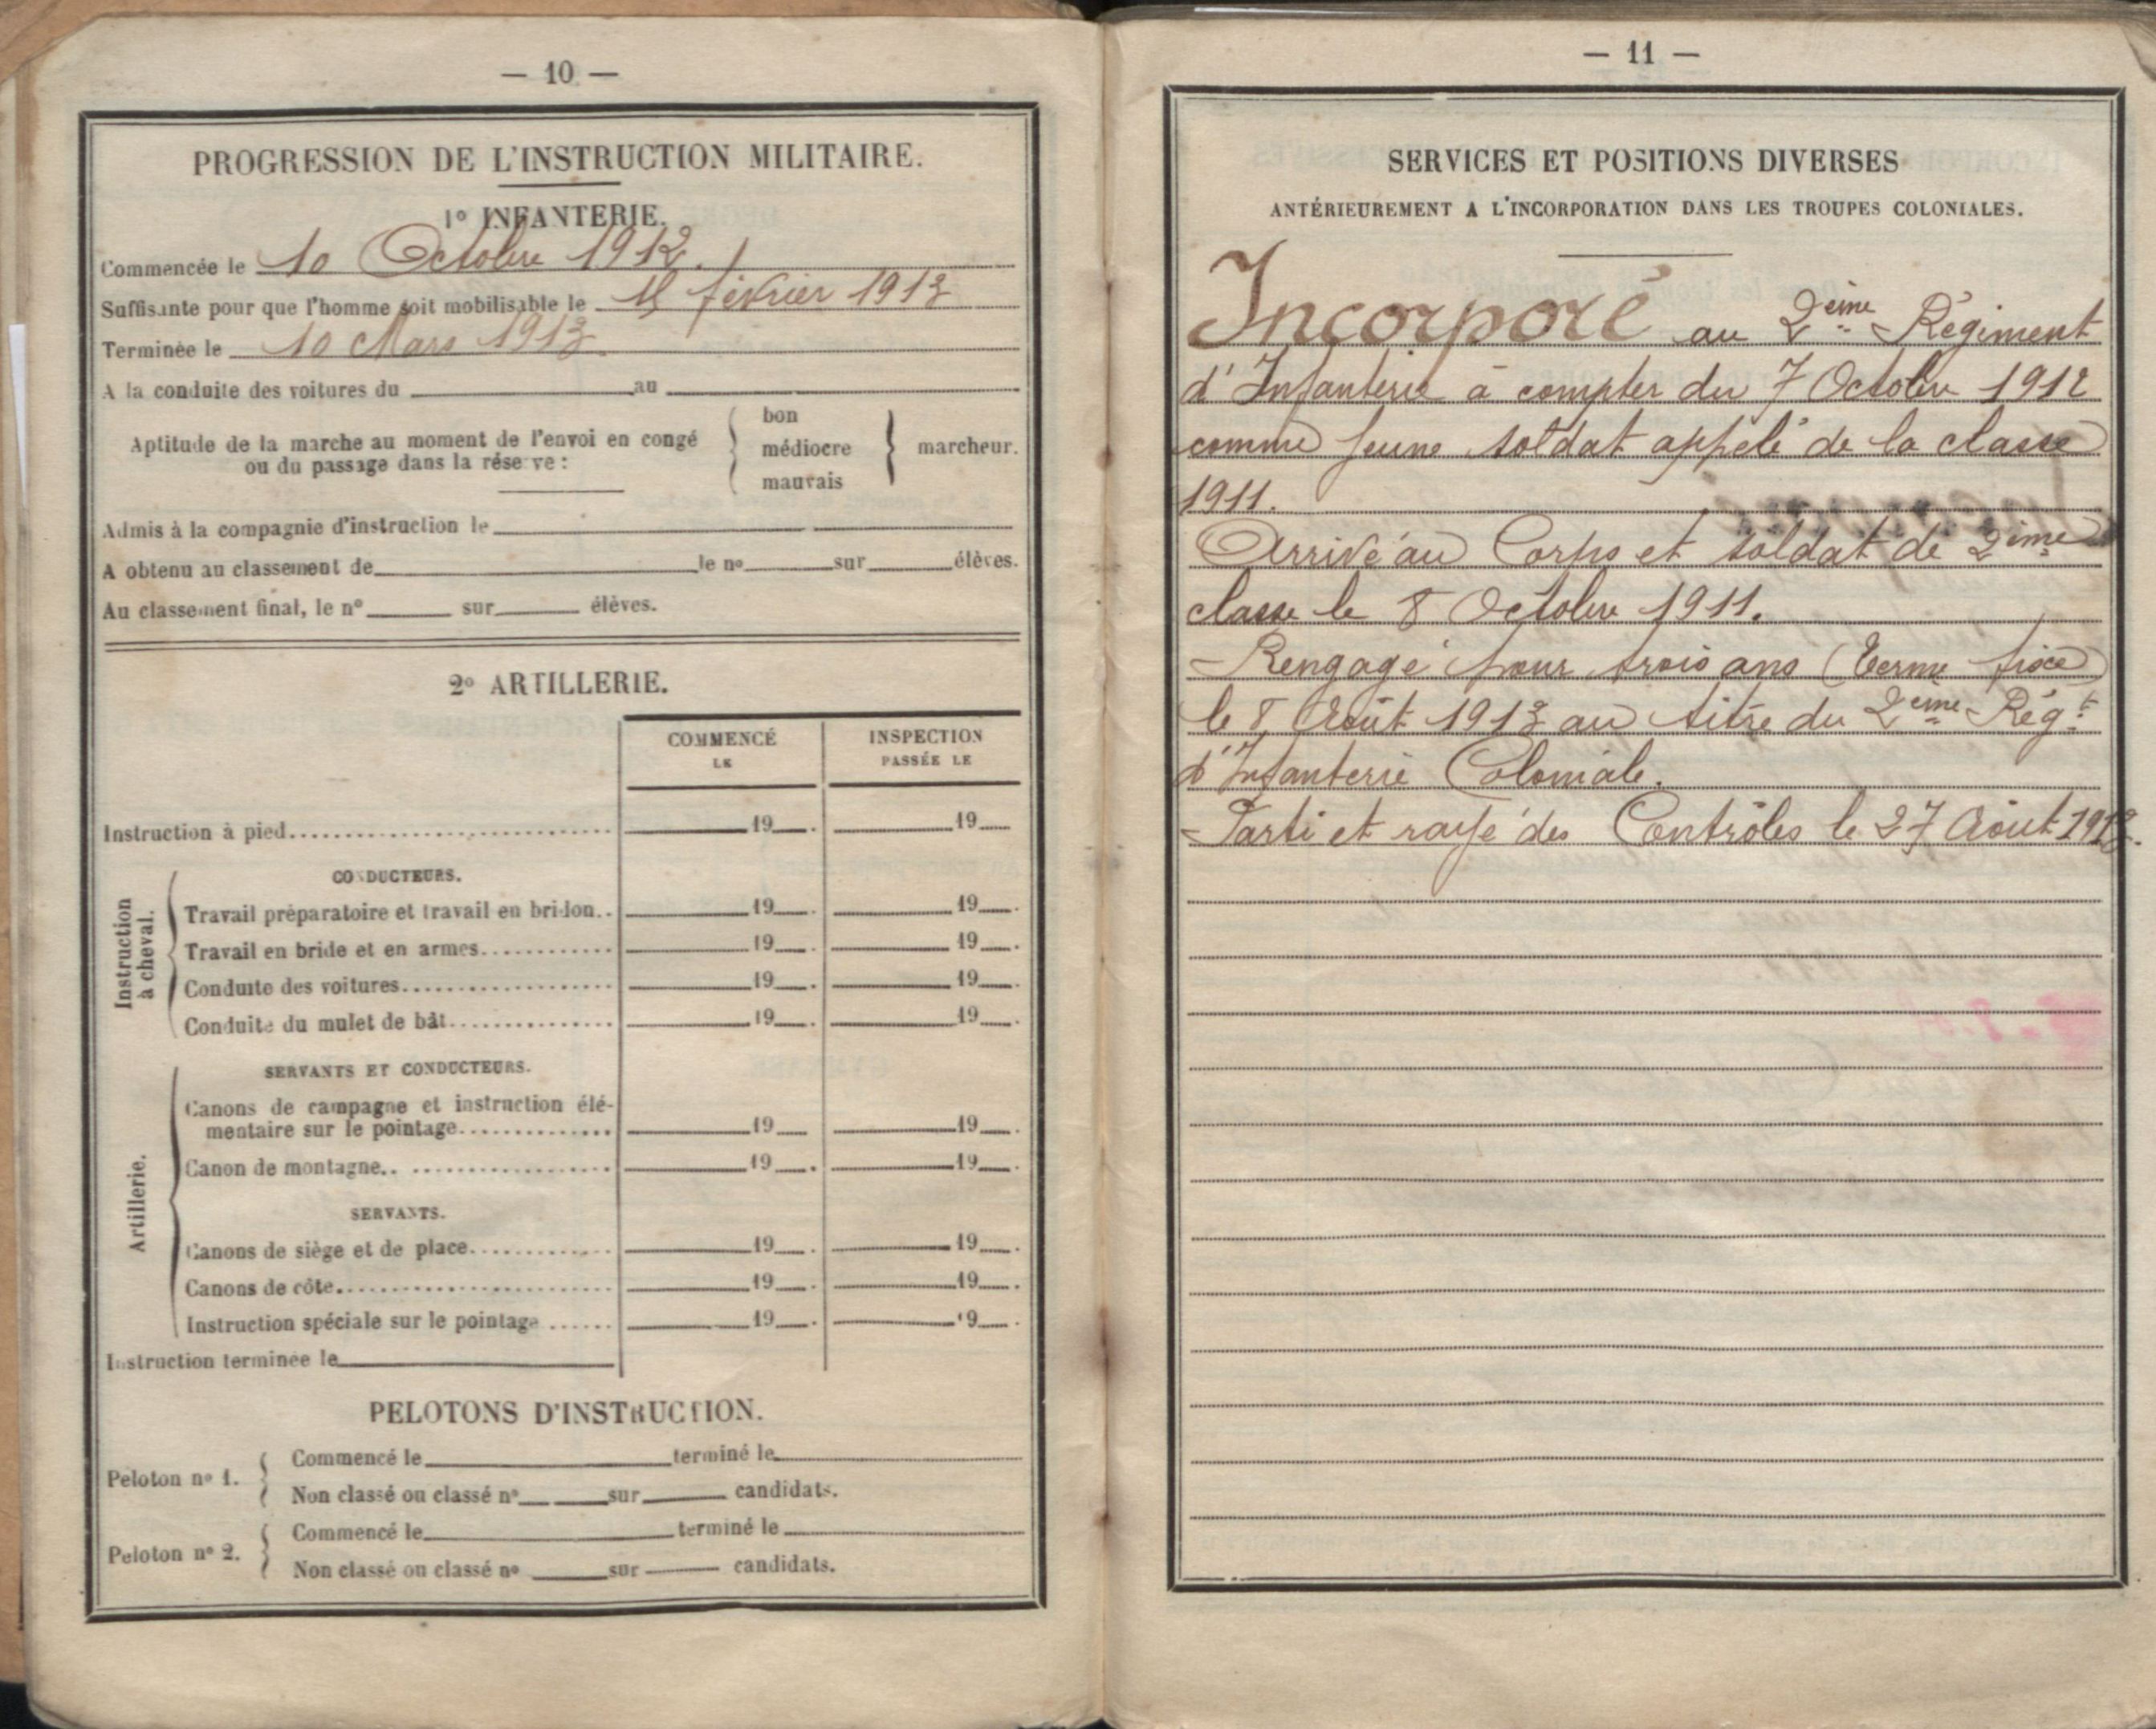 — 10 —
PROGRESSION DE L'INSTRUCTION MILITAIRE.
1º INFANTERIE.
Commencée le 10 Octobre 1912.
Suffisante pour que l'homme soit mobilisable le 15 février 1913
Terminée le 10 Mars 1913.
A la conduite des voitures du au
Aptitude de la marche au moment de l'envoi en congé
ou du passage dans la réserve :
bon
médiocre
mauvais
marcheur.
Admis à la compagnie d'instruction le
A obtenu au classement de le nº sur élèves.
Au classement final, le nº sur élèves.
2º ARTILLERIE.
COMMENCÉ LE
INSPECTION PASSÉE LE
Instruction à pied 19 . 19
Instruction à cheval.
CONDUCTEURS.
Travail préparatoire et travail en bridon.. 19 . 19 .
Travail en bride et en armes 19 . 19 .
Conduite des voitures 19 . 19 .
Conduite du mulet de bât 19 . 19 .
Artillerie.
SERVANTS ET CONDUCTEURS.
Canons de campagne et instruction élé-
mentaire sur le pointage 19 19 .
Canon de montagne 19 . 19 .
SERVANTS.
Canons de siège et de place 19 . 19 .
Canons de côte 19 . 19 .
Instruction spéciale sur le pointage 19 . 19 .
Instruction terminée le
PELOTONS D'INSTRUCTION.
Peloton nº 1.
Commencé le terminé le
Non classé ou classé nº sur candidats.
Peloton nº 2.
Commencé le terminé le
Non classé ou classé nº sur candidats.
— 11 —
SERVICES ET POSITIONS DIVERSES
ANTÉRIEUREMENT A L'INCORPORATION DANS LES TROUPES COLONIALES.
Incorporé au 2ème Régiment
d'Infanterie à compter du 7 Octobre 1912
comme jeune soldat appelé de la classe
1911.
Arrivé au Corps et soldat de 2ème
classe le 8 Octobre 1911.
Rengagé pour trois ans (Terme fixe)
le 8 Août 1913 au titre du 2ème Régt
d'Infanterie Coloniale.
Parti et rayé des Contrôles le 27 Août 1913.